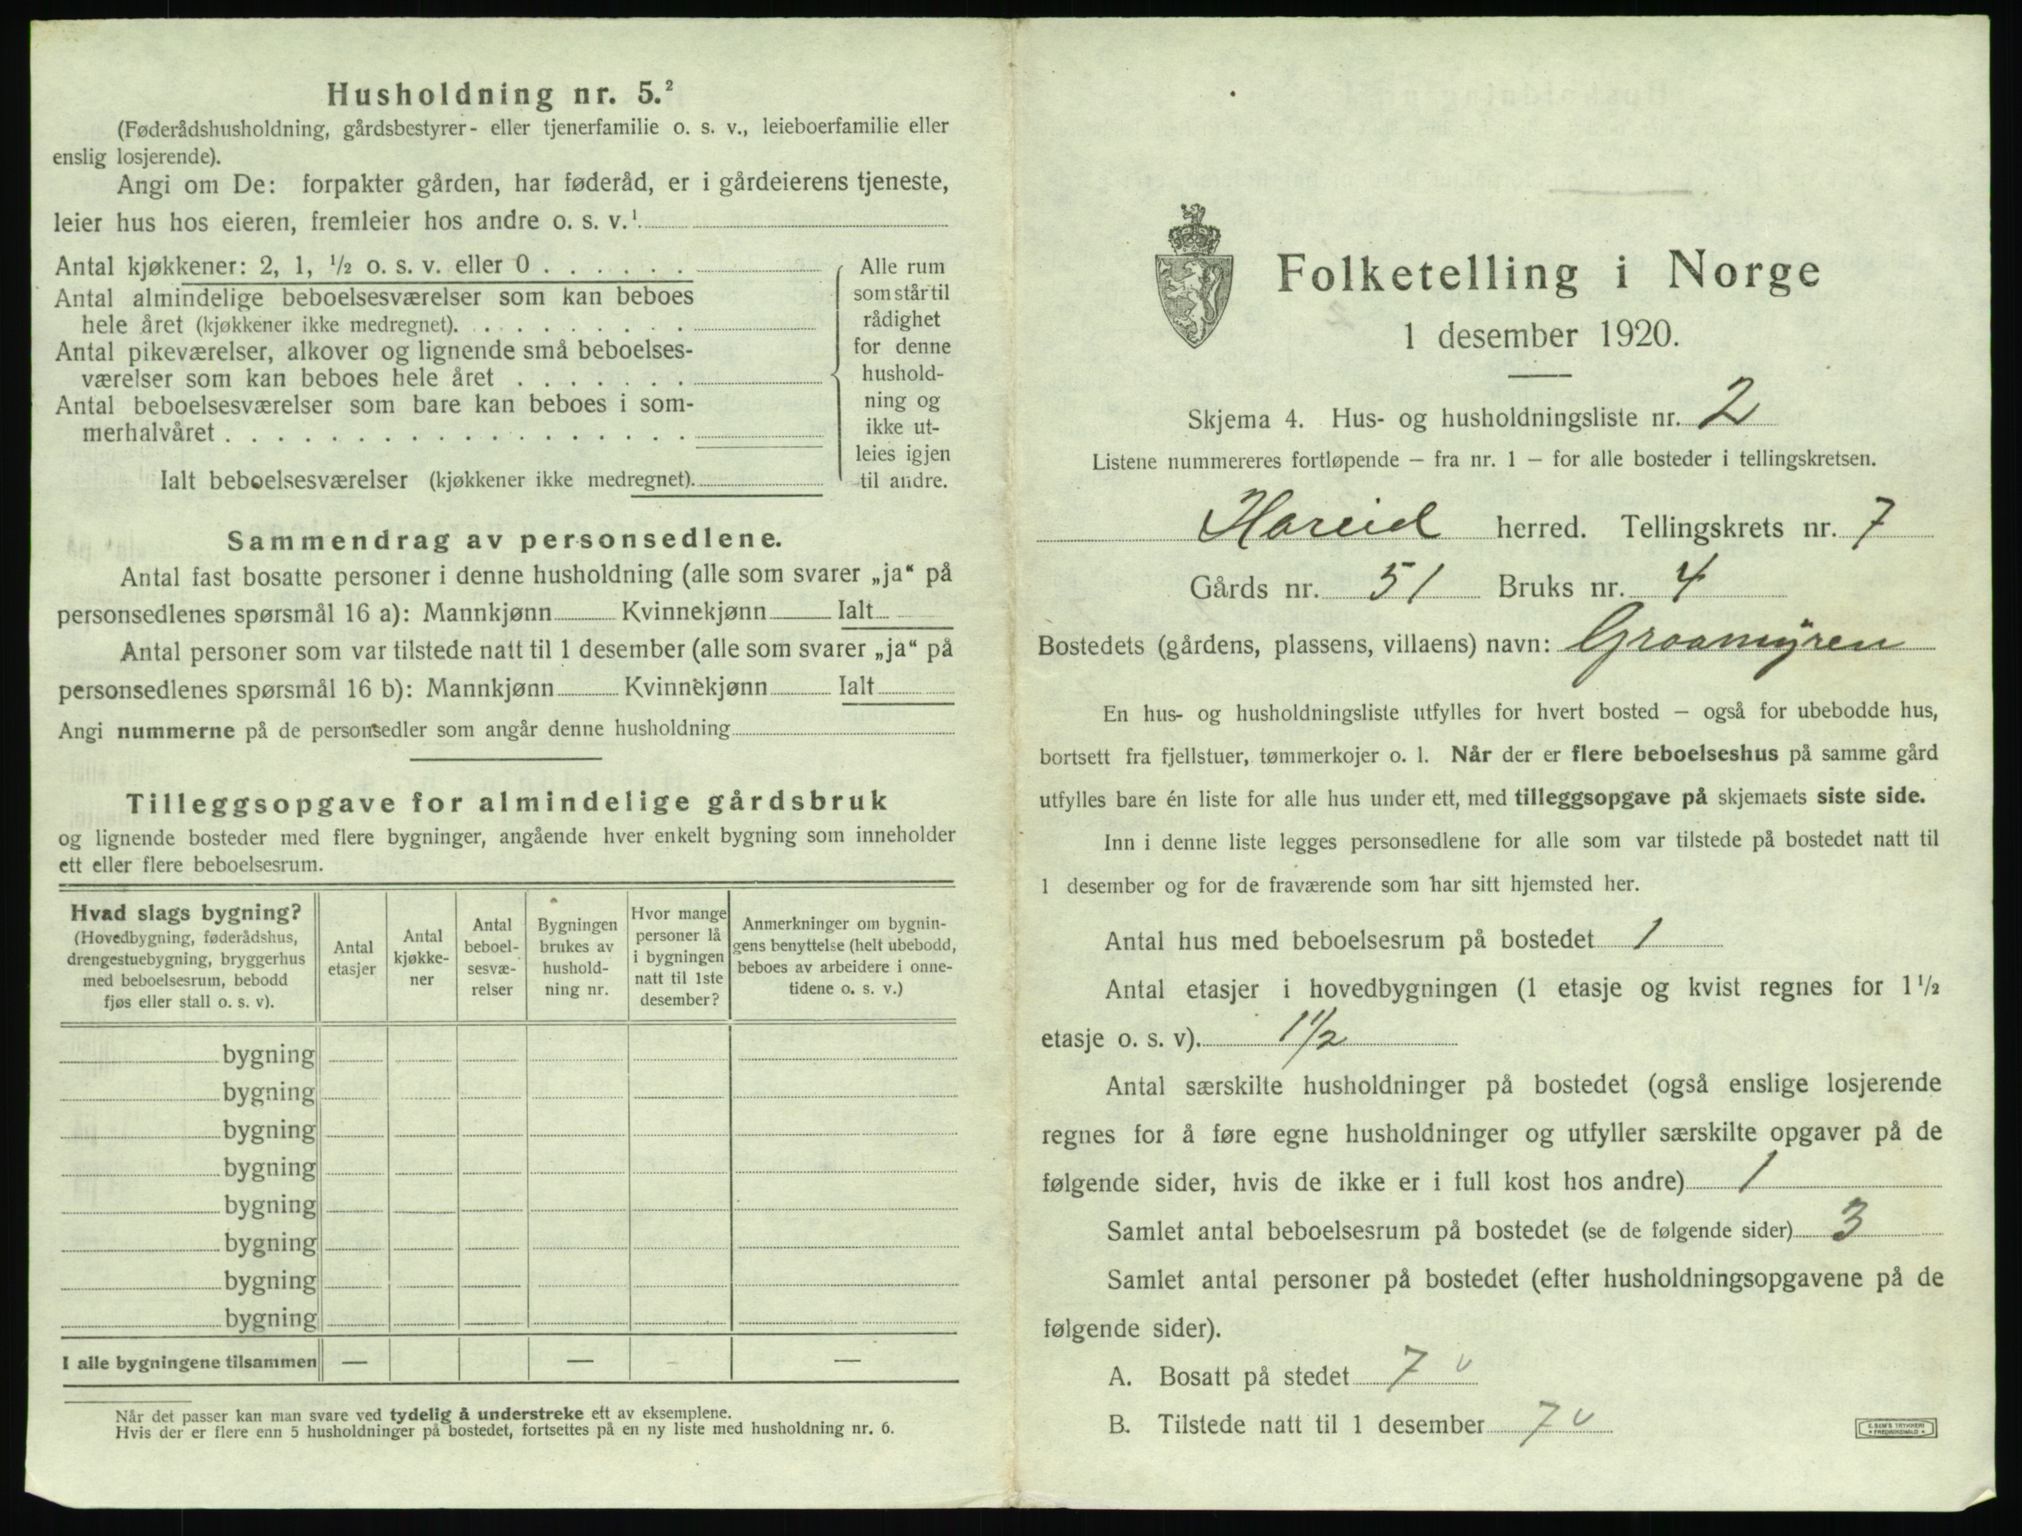 Husholdning nr. 5.²
(Føderådshusholdning, gårdsbestyrer- eller tjenerfamilie o. s. v., leieboerfamilie eller
enslig losjerende).
Angi om De: forpakter gården, har føderåd, er i gårdeierens tjeneste,
leier hus hos eieren, fremleier hos andre o. s. v.¹
Antal kjøkkener: 2, 1, ½ o. s. v. eller 0 . . . . . .
Antal almindelige beboelsesværelser som kan beboes
hele året (kjøkkener ikke medregnet). . . . . . . . .
Antal pikeværelser, alkover og lignende små beboelses-
værelser som kan beboes hele året . . . . . . .
Antal beboelsesværelser som bare kan beboes i som-
merhalvåret . . . . . . . . . . . . . . . . . .
Ialt beboelsesværelser (kjøkkener ikke medregnet).
Alle rum
som står til
rådighet
for denne
hushold-
ning og
ikke ut-
leies igjen
til andre.
Sammendrag av personsedlene.
Antal fast bosatte personer i denne husholdning (alle som svarer „ja“ på
personsedlenes spørsmål 16 a): Mannkjønn Kvinnekjønn Ialt
Antal personer som var tilstede natt til 1 desember (alle som svarer „ja“ på
personsedlenes spørsmål 16 b): Mannkjønn Kvinnekjønn Ialt
Angi nummerne på de personsedler som angår denne husholdning
Tilleggsopgave for almindelige gårdsbruk
og lignende bosteder med flere bygninger, angående hver enkelt bygning som inneholder
ett eller flere beboelsesrum.
Hvad slags bygning?
(Hovedbygning, føderådshus,
drengestuebygning, bryggerhus
med beboelsesrum, bebodd
fjøs eller stall o. s. v).
Antal
etasjer
Antal
kjøkke-
ner
Antal
beboel-
sesvæ-
relser
Bygningen
brukes av
hushold-
ning nr.
Hvor mange
personer lå
i bygningen
natt til 1ste
desember?
Anmerkninger om bygnin-
gens benyttelse (helt ubebodd,
beboes av arbeidere i onne-
tidene o. s. v.)
bygning
bygning
bygning
bygning
bygning
bygning
bygning
bygning
I alle bygningene tilsammen — — — —
Når det passer kan man svare ved tydelig å understreke ett av eksemplene.
Hvis der er flere enn 5 husholdninger på bostedet, fortsettes på en ny liste med husholdning nr. 6.
Folketelling i Norge
1 desember 1920.
Skjema 4. Hus- og husholdningsliste nr. 2
Listene nummereres fortløpende – fra nr. 1 – for alle bosteder i tellingskretsen.
Hareid herred. Tellingskrets nr. 7
Gårds nr. 51 Bruks nr. 4
Bostedets (gårdens, plassens, villaens) navn: Groamyren
En hus- og husholdningsliste utfylles for hvert bosted – også for ubebodde hus,
bortsett fra fjellstuer, tømmerkojer o. l. Når der er flere beboelseshus på samme gård
utfylles bare én liste for alle hus under ett, med tilleggsopgave på skjemaets siste side.
Inn i denne liste legges personsedlene for alle som var tilstede på bostedet natt til
1 desember og for de fraværende som har sitt hjemsted her.
Antal hus med beboelsesrum på bostedet 1
Antal etasjer i hovedbygningen (1 etasje og kvist regnes for 1½
etasje o. s. v). 1½
Antal særskilte husholdninger på bostedet (også enslige losjerende
regnes for å føre egne husholdninger og utfyller særskilte opgaver på de
følgende sider, hvis de ikke er i full kost hos andre) 1
Samlet antal beboelsesrum på bostedet (se de følgende sider) 3
Samlet antal personer på bostedet (efter husholdningsopgavene på de
følgende sider).
A. Bosatt på stedet 7 v
B. Tilstede natt til 1 desember 7 v